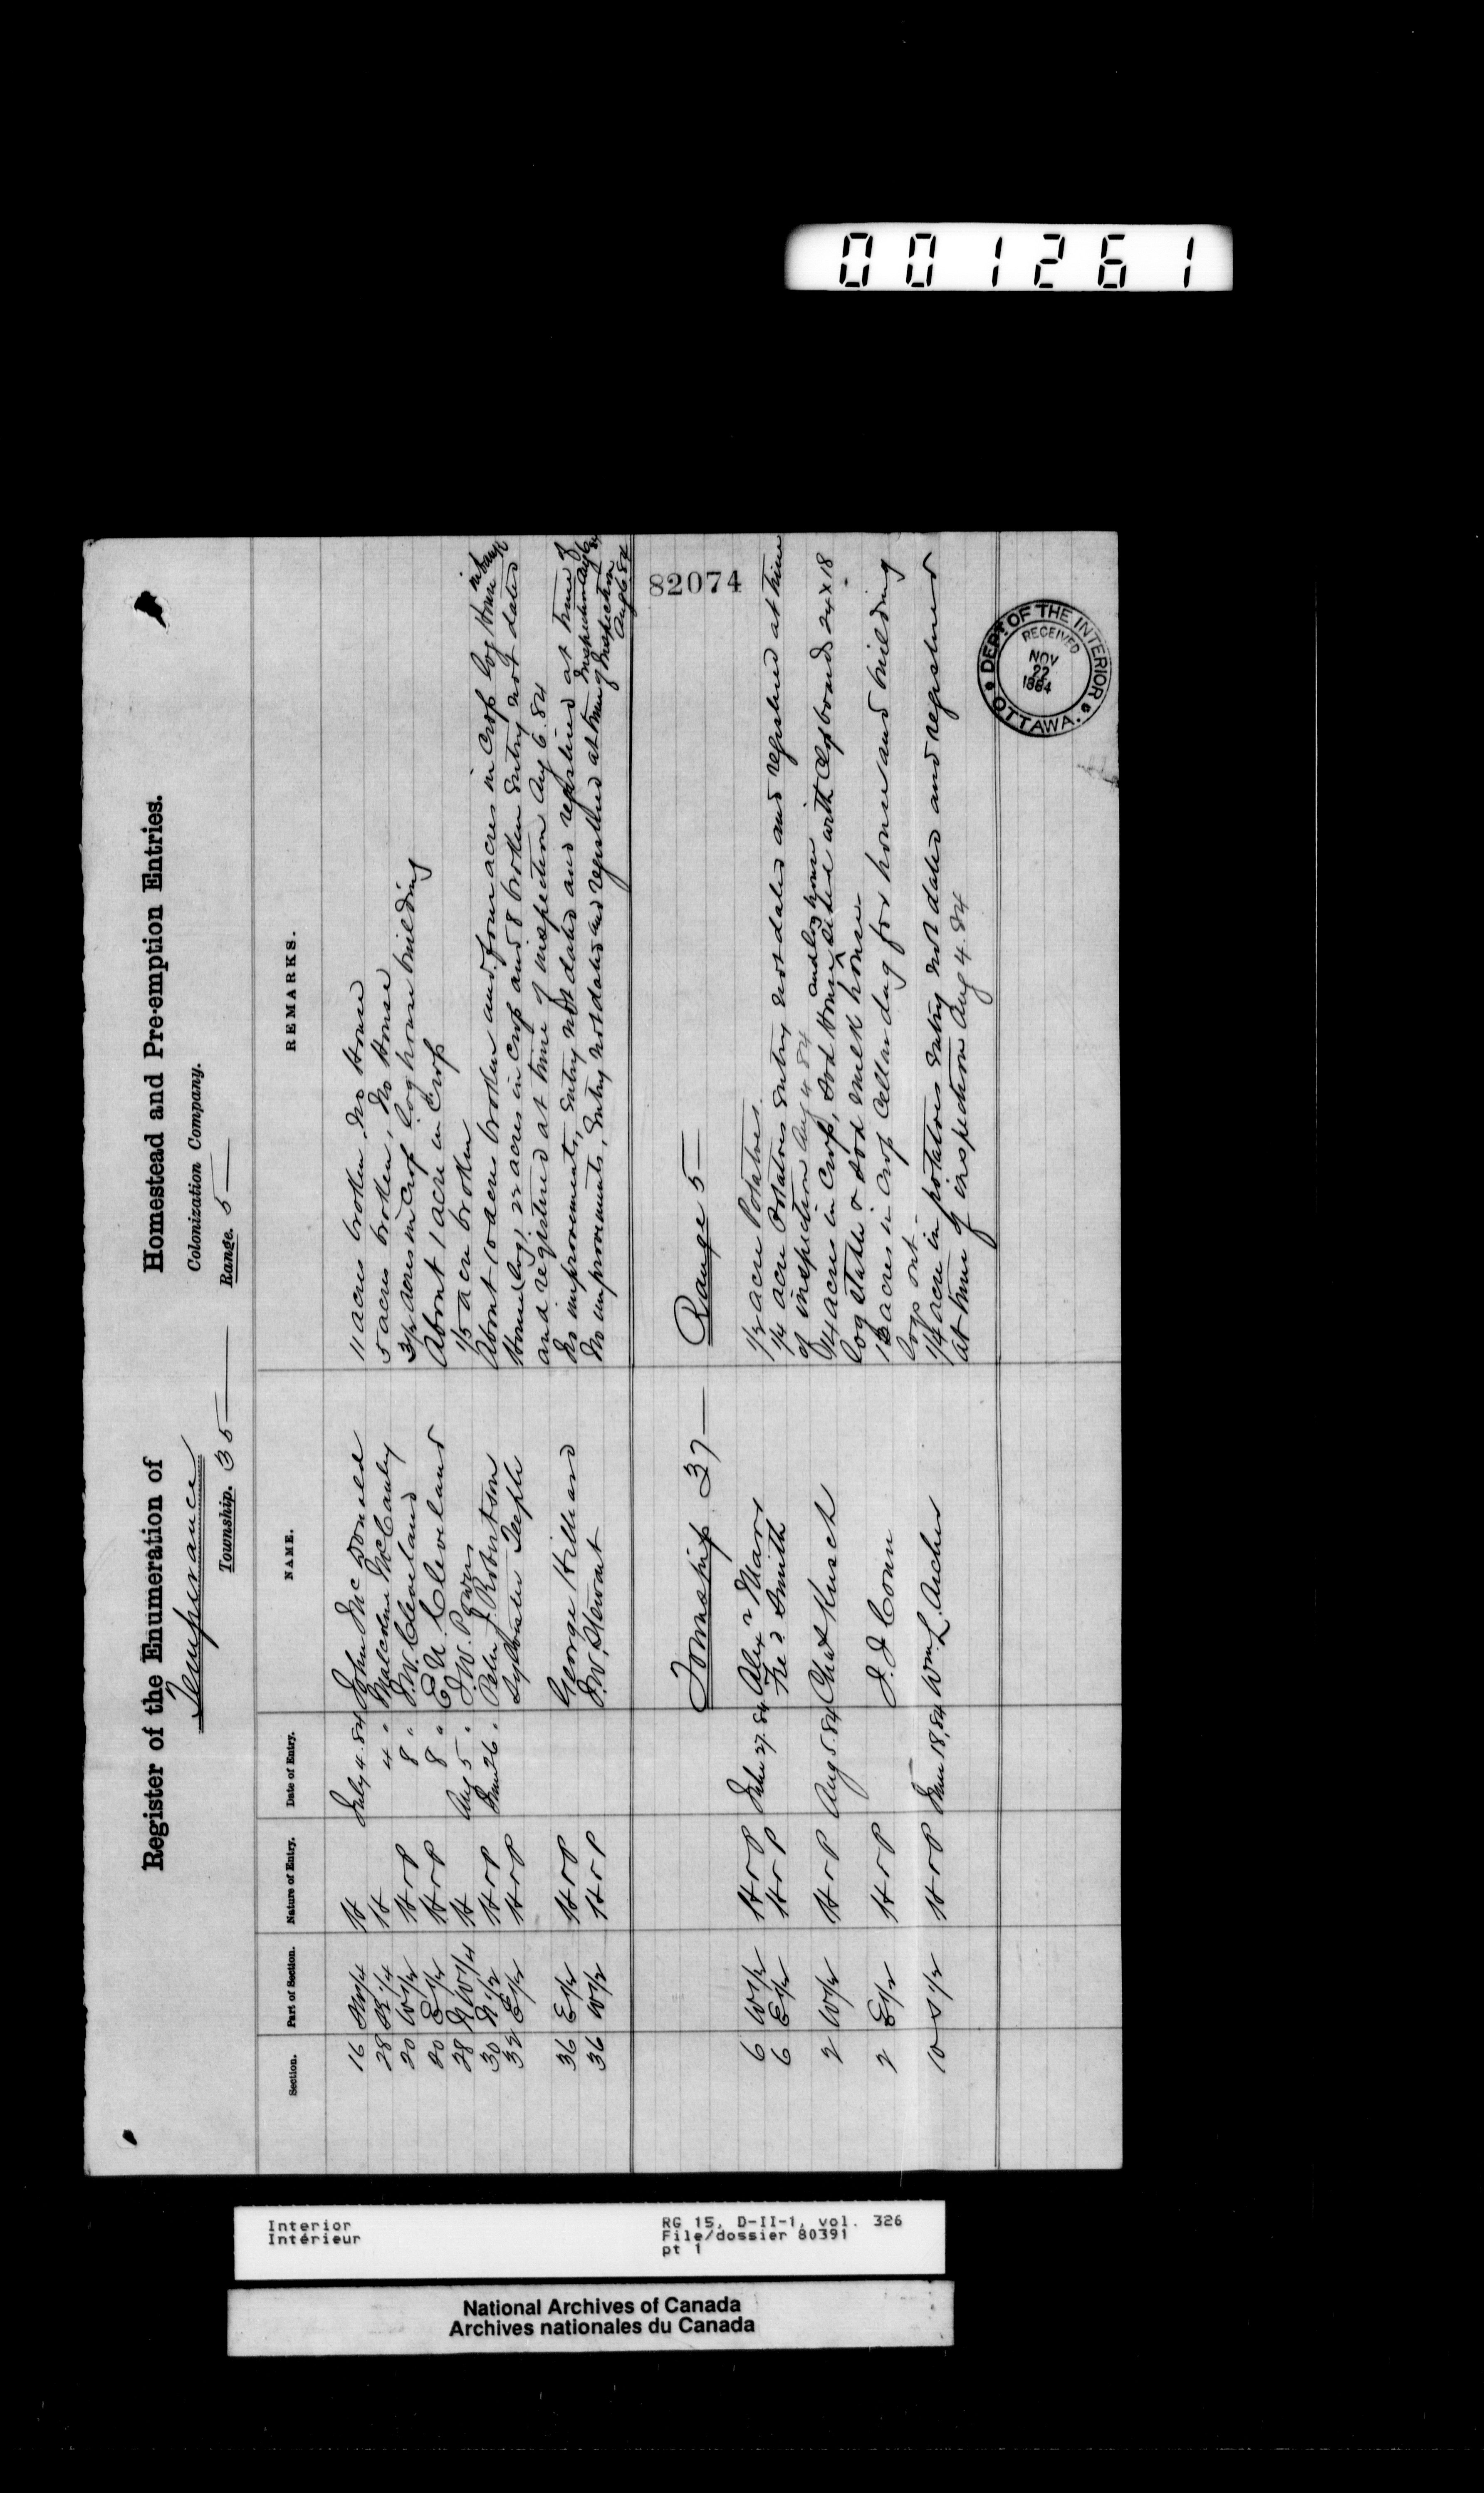 001261
Register of the Enumeration of Homestead and Pre-emption Entries.
Temperance Colonization Company.
Township. 35 Range. 5
Section. Part of Section. Nature of Entry. Date of Entry. NAME. REMARKS.
16 1/4 H July 4. 84 John McDonald 11 acres broken, No House
28 1/4 H 4 " Malcolm McCauley 5 acres broken, No House
20 W 1/2 H & P 8 " J.W. Cleveland 3 1/2 acres in Crop log house building
20 E 1/2 H & P 8 " E.N. Cleveland About 1 acre in Crop
28 N W 1/4 H Aug 5 " J.W. Powers 1/5 acre broken
30 N 1/2 H & P June 26 " Peter J. Robertson About 10 acres broken and four acres in Crop log House
32 E 1/2 H & P Sylvester Teeple House (log) 22 acres in Crop and 8 broken Entry not dated
and registered at time of inspection Aug 6. 84
36 E 1/2 H & P George Hilliard No improvements, Entry not dated and registered at time of
inspection Aug 6 84
36 W 1/2 H & P J.W. Stewart No improvements, Entry not dated and registered at time of inspection
Aug 6 84
82074
Township 37 Range 5
6 W 1/2 H & P 27. 84 Alexr Marr 1/2 acre Potatoes.
6 E 1/2 H & P Fred Smith 1/4 acre Potatoes Entry not dated and registered at time
of inspection Aug 4 84
2 W 1/2 H & P Aug 5. 84 Chas Kusch 14 acres in Crop, Sod House and log house sided with Clapboards 24 x 18
log stable & sod milk house
2 E 1/2 H & P J.J. Conn acres in Crop Cellar dug for house and building
logs out
10 S 1/2 H & P June 18. 84 Wm. L. Archer 1/4 acre in potatoes Entry not dated and registered
at time of inspection Aug 4. 84
DEPT. OF THE INTERIOR
RECEIVED
NOV
22
1884
OTTAWA.
Interior RG 15, D-II-1, vol. 326
Intérieur File/dossier 80391
pt 1
National Archives of Canada
Archives nationales du Canada